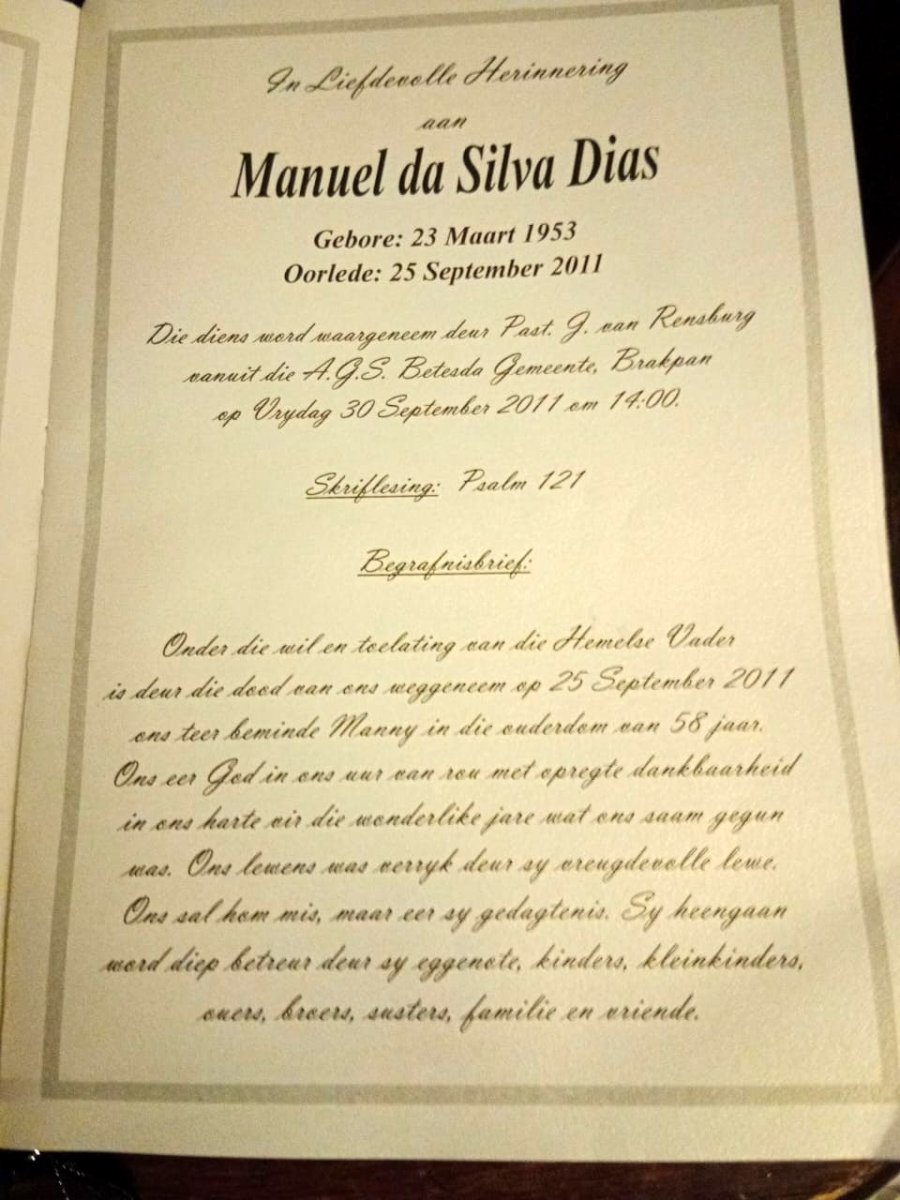 In Liefdevolle Herinnering
aan
Manuel da Silva Dias
Gebore: 23 Maart 1953
Oorlede: 25 September 2011
Die diens word waargeneem deur Past. J. van Rensburg
vanuit die A.G.S. Betesda Gemeente, Brakpan
op Vrydag 30 September 2011 om 14:00.
Skriflesing: Psalm 121
Begrafnisbrief:
Onder die wil en toelating van die Hemelse Vader
is deur die dood van ons weggeneem op 25 September 2011
ons teer beminde Manny in die ouderdom van 58 jaar.
Ons eer God in ons uur van rou met opregte dankbaarheid
in ons harte vir die wonderlike jare wat ons saam gegun
was. Ons lewens was verryk deur sy vreugdevolle lewe.
Ons sal hom mis, maar eer sy gedagtenis. Sy heengaan
word diep betreur deur sy eggenote, kinders, kleinkinders,
ouers, broers, susters, familie en vriende.